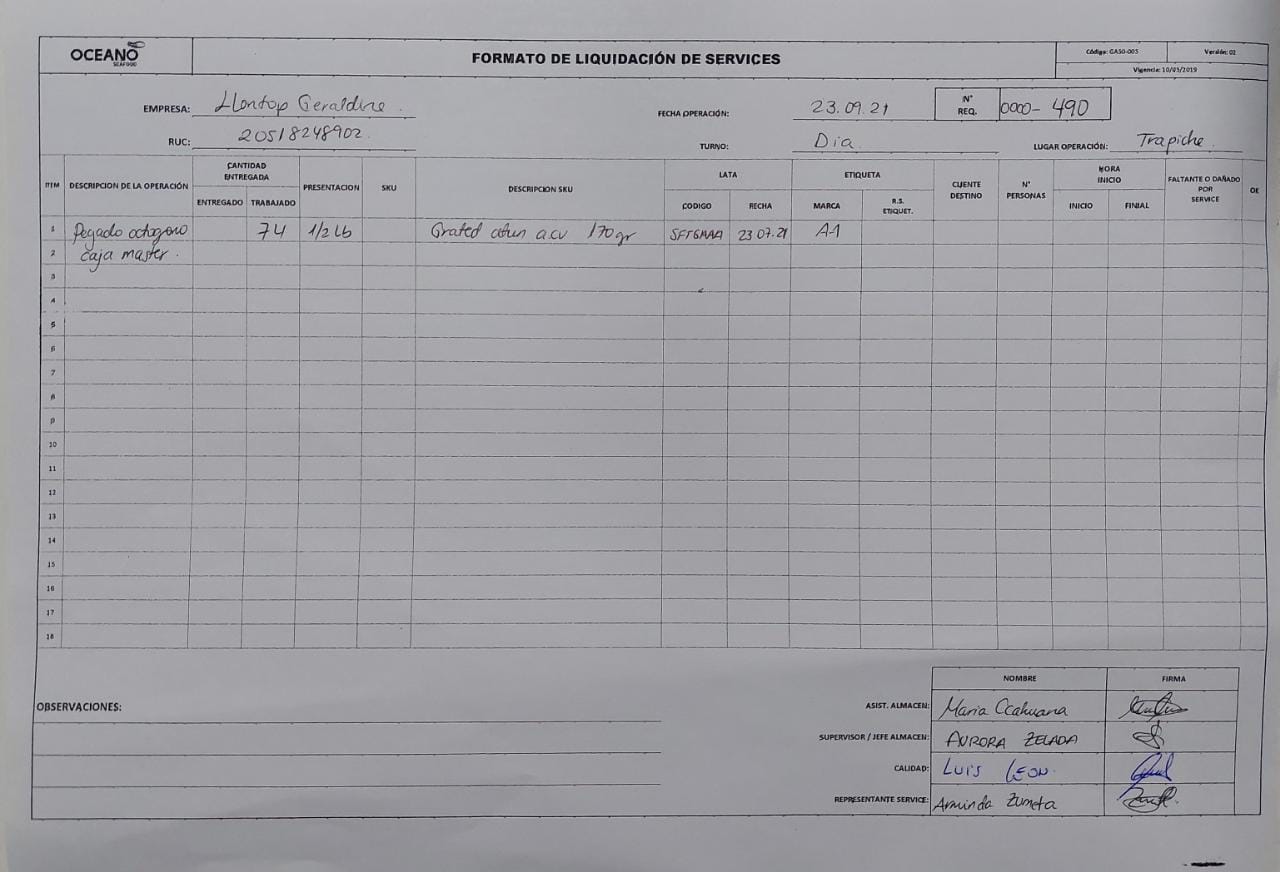 OCEANO
SEAFOOD
FORMATO DE LIQUIDACIÓN DE SERVICES
Código: GASO-005 Versión: 02
Vigencia: 10/05/2019
EMPRESA: Llontop Geraldine
FECHA OPERACIÓN: 23.09.21
N° REQ. 0000-490
RUC: 20518248902
TURNO: Dia
LUGAR OPERACIÓN: Trapiche
ITEM DESCRIPCION DE LA OPERACIÓN CANTIDAD ENTREGADA PRESENTACION SKU DESCRIPCION SKU LATA ETIQUETA CLIENTE DESTINO N° PERSONAS HORA INICIO FALTANTE O DAÑADO POR SERVICE OE
ENTREGADO TRABAJADO CODIGO FECHA MARCA R.S. ETIQUET. INICIO FINIAL
1 Pegado octogono 74 1/2 lb Grated atun a.cv 170 gr 23 07.21 A-1
2 caja master.
3
4
5
6
7
8
9
10
11
12
13
14
15
16
17
18
NOMBRE FIRMA
OBSERVACIONES:
ASIST. ALMACEN: Maria Ccahuana
SUPERVISOR / JEFE ALMACEN: AURORA ZELADA
CALIDAD: LUIS LEON.
REPRESENTANTE SERVICE: Arminda Zumeta